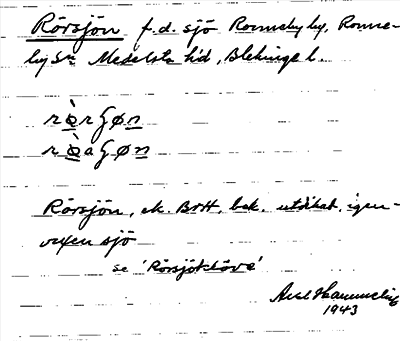 Rörsjön f.d. sjö Ronneby by, Ronne-
by Sn Medelsta hd, Blekinge l.
rὸrʒøn
rὸaʒøn
Rörsjön, ek. BrH, bek. utdikat, igen-
vuxen sjö
se 'Rörsjöklöve'
Axel
1943